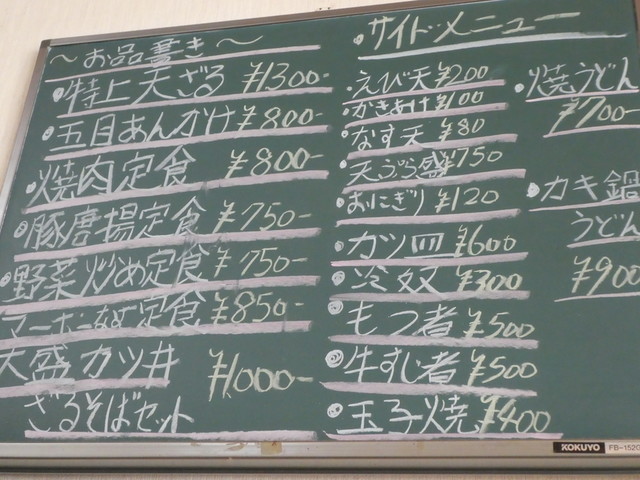 ～お品書き～
・特上天ざる ¥1300-
・五目あんかけ ¥800-
・焼肉定食 ¥800-
・豚唐揚定食 ¥750-
・野菜炒め定食 ¥750-
マーボーなす定食 ¥850-
大盛カツ丼 ¥1000-
ざるそばセット
・サイドメニュー
・えび天 ¥200
・かきあげ ¥100
・なす天 ¥80
・天ぷら盛 ¥750
・おにぎり ¥120
・カツ皿 ¥600
・冷奴 ¥300
・もつ煮 ¥500
・牛すじ煮 ¥500
・玉子焼 ¥400
・焼うどん
¥700-
・カキ鍋
うどん
¥900-
KOKUYO FB-1520